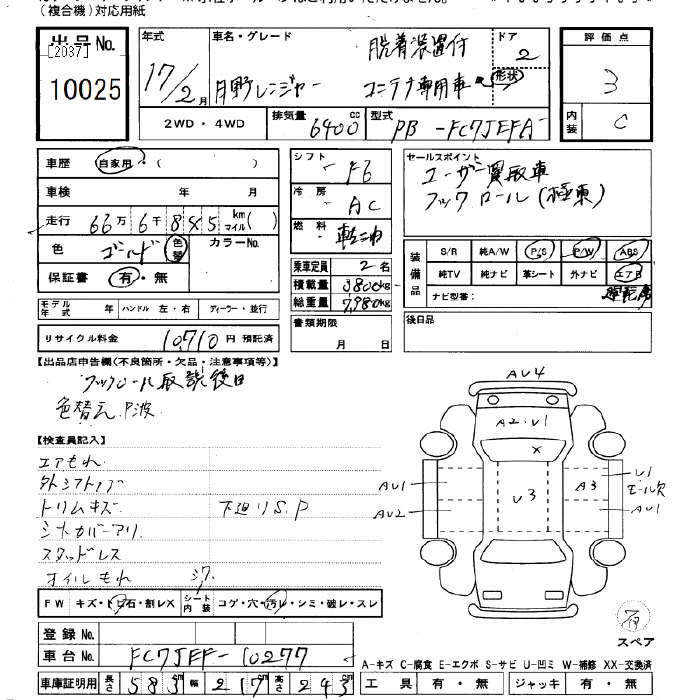 (複合機)対応用紙
出品No. [2037] 10025
年式 17/2月
車名・グレード 日野レンジャー 脱着装置付 コンテナ専用車
ドア 2 形状
評価点 3
内装 C
2WD・4WD
排気量 6400 cc
型式 PB-FC7JEFA
車歴 自家用・( )
車検 年 月
走行 66万6千845 km マイル( )
色 ゴールド 色替 カラーNo.
保証書 有・無
モデル年式 年 ハンドル 左・右 ディーラー・並行
リサイクル料金 10,710円 預託済
シフト F6
冷房 AC
燃料 軽油
乗車定員 2名
積載量 3800kg
総重量 7,980kg
書類期限 月 日
セールスポイント
ユーザー買取車
フックロール(極東)
装備品 S/R 純A/W P/S P/W ABS
純TV 純ナビ 革シート 外ナビ エアB
ナビ型番: 運転席
後日品
【出品店申告欄(不良箇所・欠品・注意事項等)】
フックロール取説後日
色替え P波
【検査員記入】
エアもれ
外シフトノブ
トリムキズ 下廻りS.P
シートカバーアリ
スタッドレス
オイルもれ
AU4
A2・U1
X
U3
AU1
AU2
A3
U1
モール欠
AU1
スペア
FW キズ・トビ石・割レX シート内装 コゲ・穴・汚レ・シミ・破レ・スレ
登録No.
車台No. FC7JEF-10277
車庫証明用 長さ 583 cm 幅 217 cm 高さ 243 cm
A-キズ C-腐食 E-エクボ S-サビ U-凹ミ W-補修 XX-交換済
工具 有・無 ジャッキ 有・無